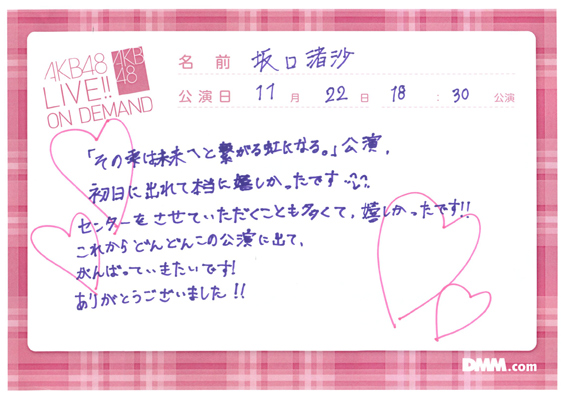 AKB48
LIVE!!
ON DEMAND
AKB
48
名前 坂口渚沙
公演日 11月 22日 18:30 公演
「その雫は未来へと繋がる虹になる。」公演、
初日に出れて本当に嬉しかったです
センターをさせていただくことも多くて、嬉しかったです!!
これからどんどんこの公演に出て、
がんばっていきたいです!
ありがとうございました!!
DMM.com